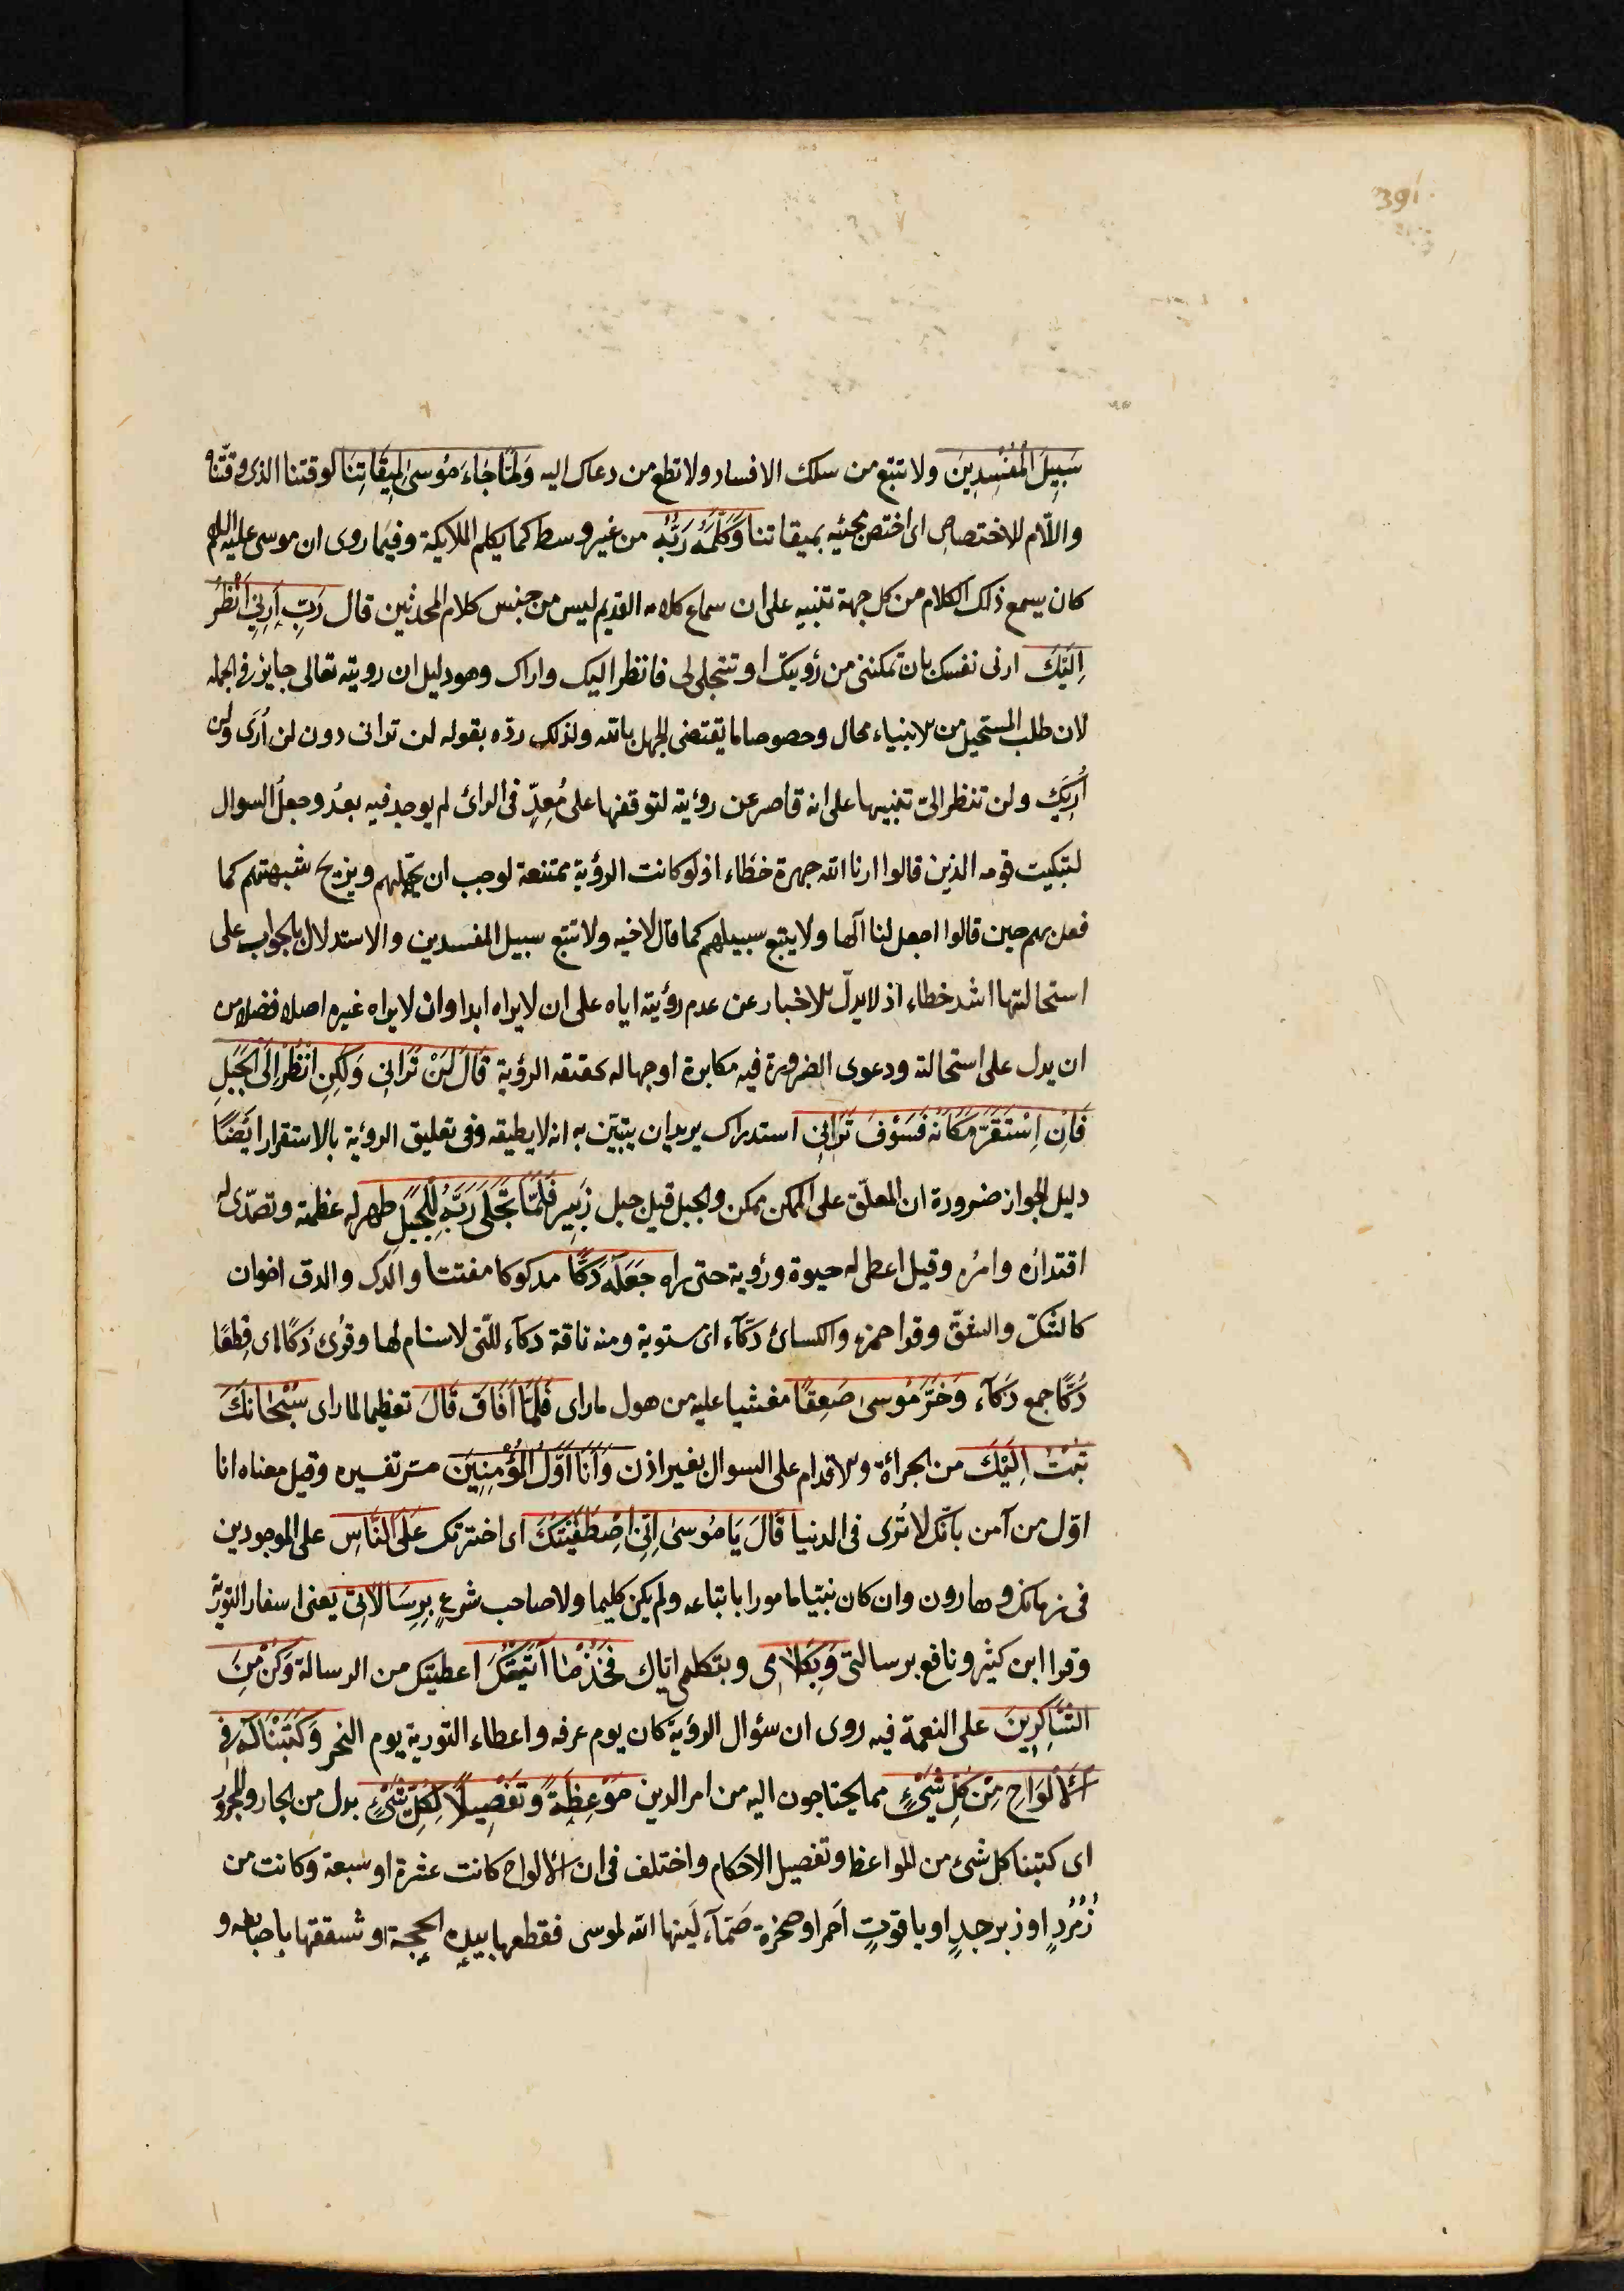 391
سَبِيلَ الْمُفْسِدِينَ ولا تتبع من سلك الافساد ولا تطع من دعاك اليه وَلَمَّا جَاءَ مُوسىٰ لِمِيقَاتِنَا لوقتنا الذى وقّتناه
واللام للاختصاص اى اختص مجيئه بميقاتنا وَكَلَّمَهُ رَبُّهُ من غير وسط كما يكلم الملايكة وفيما روى ان موسى عليه السلام
كان يسمع ذلك الكلام من كل جهة تنبيه على ان سماع كلامه القديم ليس من جنس كلام المحدثين قال رَبِّ أَرِنِي أَنْظُرْ
إِلَيْكَ ارنى نفسك بان تمكننى من رؤيتك او تتجلى لى فانظر اليك واراك وهو دليل ان رويته تعالى جايز فى الجمله
لان طلب المستحيل من الانبياء محال وخصوصا ما يقتضى الجهل بالله ولذلك ردّه بقوله لن ترانى دون لن أُرَى ولن
أُرِيَكَ ولن تنظر الىّ تنبيها على انه قاصر عن رؤيته لتوقفها على مُعِدٍّ فى الرائ لم يوجد فيه بعدُ وجعلُ السوال
لتبكيت قومه الذين قالوا ارنا الله جهرة خطاء اذ لو كانت الرؤية ممتنعة لوجب ان يجهّلهم ويزيح شبهتهم كما
فعل بهم حين قالوا اجعل لنا آلها ولا يتبع سبيلهم كما قال لاخيه ولا تتبع سبيل المفسدين والاستدلال بالجواب على
استحالتها اشد خطاء اذ لا يدلّ الاخبار عن عدم رؤيته اياه على ان لا يراه ابدا وان لا يراه غيره اصلا فضلا من
ان يدل على استحالته ودعوى الضرورة فيه مكابرة او جهاله بحقيقة الرؤية قَالَ لَنْ تَرَانِي وَلَكِنِ انْظُرْ إِلَى الْجَبَلِ
فَإِنِ اسْتَقَرَّ مَكَانَهُ فَسَوْفَ تَرَانِي استدراك يريد ان يبيّن به انه لا يطيقه وفى تعليق الرؤية بالاستقرار ايضًا
دليل الجواز ضرورة ان المعلّق على الممكن ممكن والجبل قيل جبل زَبِير فَلَمَّا تَجَلَّى رَبُّهُ لِلْجَبَلِ ظهر له عظمته وتصدّى له
اقتداره وامره وقيل اعطى له حيوة ورؤية حتى راه جَعَلَهُ دَكًّا مدكوكا مفتتا والدك والدق اخوان
كالشكّ والشقّ وقرا حمزه والكسائ دكّآء اى مستوية ومنه ناقة دكآء للّتى لاسنام لها وقرئ دُكًّا اى قِطَعًا
دُكًّا جمع دَكّآء وَخَرَّ مُوسىٰ صَعِقًا مغشيا عليه من هول ما راى فَلَمَّا أَفَاقَ قَالَ تعظيما لما راى سُبْحَانَكَ
تُبْتُ إِلَيْكَ من الجرأة والاقدام على السوال بغير اذن وَأَنَا أَوَّلُ الْمُؤْمِنِينَ مرّ تفسيره وقيل معناه انا
اوّل من آمن بانّك لا تُرى فى الدنيا قَالَ يَا مُوسىٰ إِنِّي اصْطَفَيْتُكَ اى اخترتك عَلَى النَّاسِ على الموجودين
فى زمانك وهارون وان كان نبيّا مامورا باتباعه ولم يكن كليما ولا صاحب شرعٍ بِرِسَالَاتِي يعنى اسفار التورية
وقرا ابن كثير ونافع برسالتى وَبِكَلَامِى وبتكليمى اياك فَخُذْ مَا آتَيْتُكَ اعطيتك من الرسالة وَكُنْ مِنَ
الشَّاكِرِينَ على النعمة فيه روى ان سؤال الرؤية كان يوم عرفه واعطاء التورية يوم النحر وَكَتَبْنَا لَهُ فِى
الْأَلْوَاحِ مِنْ كُلِّ شَيْءٍ مما يحتاجون اليه من امر الدين مَوْعِظَةً وَتَفْصِيلًا لِكُلِّ شَيْءٍ بدل من الجار والمجرور
اى كتبنا كل شئ من المواعظ وتفصيل الاحكام واختلف فى ان الالواح كانت عشرة او سبعة وكانت من
زُمُرُّدٍ او زبرجدٍ او ياقوتٍ احمر او صخرة صَمّآء لَيّنها الله لموسى فقطعها بيده او شققها باصابعه و